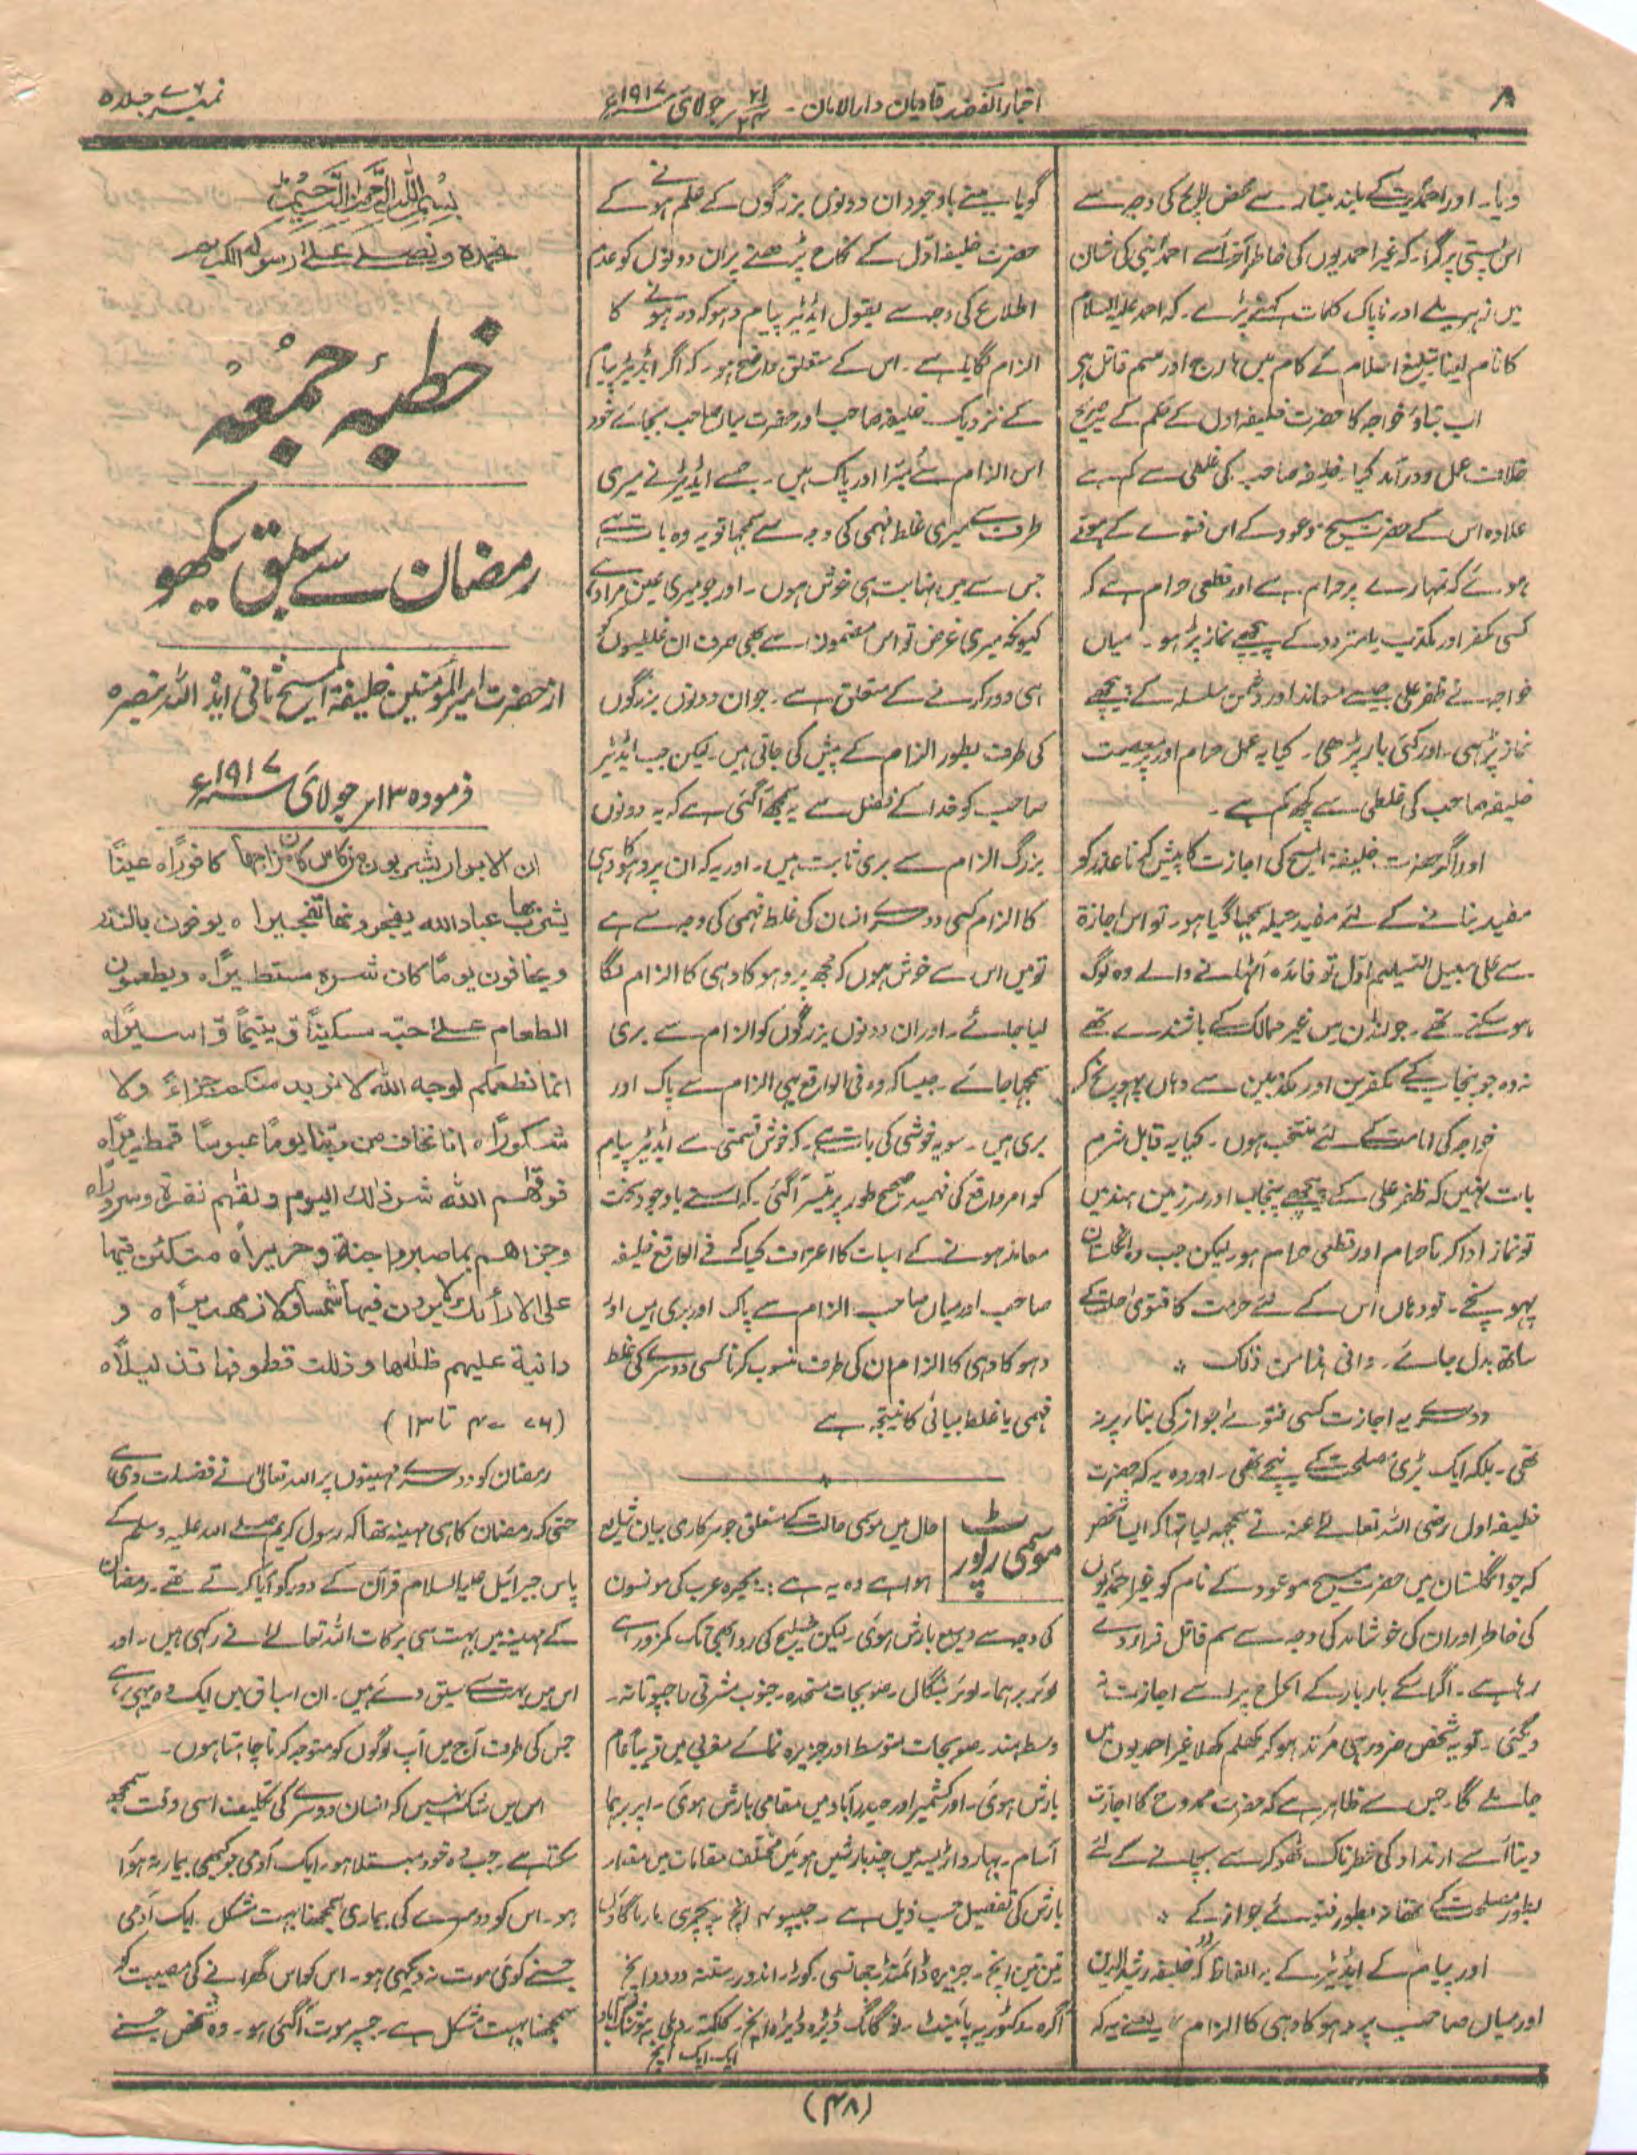 ۸
اخبار الفضل قادیان دارالامان - ۲۱/۲۴ جولائی ۱۹۱۷ء
نمبر ۷۶ جلد ۵
دیا۔ اور احمدیت کے بلند مینار سے محض لالچ کی وجہ سے
اس پستی پر گرا۔ کہ غیر احمدیوں کی خاطر آخر اسے احمد نبی کی شان
میں زہریلے اور ناپاک کلمات کہنے پڑے۔ کہ احمد علیہ السلام
کا نام لینا تبلیغ اسلام کے کام میں ہارج اور سم قاتل ہے
اب بتاؤ خواجہ کا حضرت خلیفہ اول کے حکم کے صریح
خلاف عمل درآمد کیا۔ خلیفہ صاحب کی غلطی سے کم ہے
علاوہ اس کے حضرت مسیح موعود کے اس فتوے کے ہوتے
ہوئے کہ تمہارے پر حرام ہے اور قطعی حرام ہے کہ
کسی مکفر اور مکذب یا متردد کے پیچھے نماز پڑہو۔ میاں
خواجہ نے ظفر علی جیسے معاند اور دشمن سلسلہ کے پیچھے
نماز پڑہی۔ اور کئی بار پڑھی۔ کیا یہ عمل حرام اور پرمعصیت
خلیفہ صاحب کی غلطی سے کچھ کم ہے۔
اور اگر حضرت خلیفۃ المسیح کی اجازت کا پیش کرنا عذر کو
مفید بنانے کے لئے مفید حیلہ سمجہا گیا ہو۔ تو اس اجازۃ
سے علی سبیل التسلیم اول تو فائدہ اٹہانے والے وہ لوگ
ہو سکتے تھے۔ جو لنڈن میں غیر ممالک کے باشندے تھے
نہ وہ جو پنجاب کے مکفرین اور مکذبین سے وہاں پہونچ کر
خواجہ کی امامت کے لئے منتخب ہوں۔ کیا یہ قابل شرم
بات نہیں کہ ظفر علی کے پیچھے پنجاب اور سرزمین ہند میں
تو نماز ادا کرنا حرام اور قطعی حرام ہو لیکن جب وہ انگلستان
پہونچے۔ تو وہاں اس کے لئے حرمت کا فتویٰ حلت کے
ساتھ بدل جائے۔ وانی ہذا من ذلک ؞
دوسرے یہ اجازت کسی فتوے جواز کی بنا پر نہ
تھی۔ بلکہ ایک بڑی مصلحت کے نیچے تھی۔ اور وہ یہ کہ حضرت
خلیفہ اول رضی اللہ تعالےٰ عنہ نے سمجہہ لیا تہا کہ ایسا شخص
کہ جو انگلستان میں حضرت مسیح موعود کے نام کو غیر احمدیوں
کی خاطر اور ان کی خوشامد کی وجہ سے سم قاتل قرار دے
رہا ہے۔ اگر اسکے بار بار کے الحاح پر اسے اجازت نہ
دیگئی۔ تو یہ شخص ضرور ہی مرتد ہو کر کھلم کھلا غیر احمدیوں میں
جا ملے گا۔ جس سے ظاہر ہے کہ حضرت ممدوح کا اجازت
دینا اسے ارتداد کی خطرناک ٹھوکر سے بچانے کے لئے
بطور مصلحت کے تھا نہ بطور فتوے جواز کے ؞
اور پیام کے ایڈیٹر کے یہ الفاظ کہ "خلیفہ رشید الدین
اور میاں صاحب پر دہوکا دہی کا الزام" یعنے یہ کہ
گویا مینے باوجود ان دونوں بزرگوں کے علم ہونے کے
حضرت خلیفہ اول کے نکاح پڑھنے پر ان دونوں کو عدم
اطلاع کی وجہ سے بقول ایڈیٹر پیام دہوکہ دہ ہونے کا
الزام لگایا ہے۔ اس کے متعلق واضح ہو۔ کہ اگر ایڈیٹر پیام
کے نزدیک خلیفہ صاحب اور حضرت میاں صاحب بجائے خود
اس الزام سے مبرا اور پاک ہیں۔ جسے ایڈیٹر نے میری
طرف سے میری غلط فہمی کی وجہ سے سمجہا تو یہ وہ بات ہے
جس سے میں نہایت ہی خوش ہوں۔ اور جو میری عین مراد ہے
کیونکہ میری غرض تو اس مضمون سے بھی صرف ان غلطیوں کو
ہی دور کرنے کے متعلق ہے۔ جو ان دونوں بزرگوں
کی طرف بطور الزام کے پیش کی جاتی ہیں۔ لیکن جب ایڈیٹر
صاحب کو خدا کے فضل سے یہ سمجھ آگئی ہے کہ یہ دونوں
بزرگ الزام سے بری ثابت ہیں۔ اور یہ کہ ان پر دہوکا دہی
کا الزام کسی دوسرے انسان کی غلط فہمی کی وجہ سے ہے
تو میں اس سے خوش ہوں کہ مجھ پر دہوکا دہی کا الزام لگا
لیا جائے۔ اور ان دونوں بزرگوں کو الزام سے بری
سمجہا جائے۔ جیسا کہ وہ فی الواقع ہی الزام سے پاک اور
بری ہیں۔ سو یہ خوشی کی بات ہے۔ کہ خوش قسمتی سے ایڈیٹر پیام
کو امر واقع کی فہمید صحیح طور پر میسر آگئی۔ کہ اسنے باوجود سخت
معاند ہونے کے اس بات کا اعتراف کیا کہ فے الواقع خلیفہ
صاحب اور میاں صاحب الزام سے پاک اور بری ہیں اور
دہوکا دہی کا الزام ان کی طرف منسوب کرنا کسی دوسرے کی غلط
فہمی یا غلط بیانی کا نتیجہ ہے
موسمی رپورٹ
حال میں موسمی حالت کے متعلق جو سرکاری بیان شایع
ہوا ہے وہ یہ ہے :- بحیرہ عرب کی مونسون
کی وجہ سے وسیع بارش ہوئی۔ لیکن خلیج کی رو ابھی تک کمزور ہے
لوئر برہما۔ لوئر بنگال۔ صوبجات متحدہ۔ جنوب مشرقی راجپوتانہ۔
وسط ہند۔ صوبجات متوسط اور جزیرہ نما کے مغربی میں قریباً عام
بارش ہوئی۔ اور کشمیر اور حیدرآباد میں مقامی بارش ہوئی۔ اپر برہما
آسام۔ بہار و اڑیسہ میں چند بارشیں ہوئیں مختلف مقامات میں مقدار
بارش کی تفصیل حسب ذیل ہے۔ جیپور ۴ انچ۔ پچمڑی۔
تین تین انچ۔ جزیرہ ڈائمنڈ۔ جھانسی۔ کوٹہ۔ اندور۔ ستنہ دو دو انچ
آگرہ۔ وکٹوریہ پائینٹ۔ نوگانگ ڈیڑہ ڈیڑہ انچ۔ کلکتہ۔ دہلی۔
ایک ایک انچ
بسم اللہ الرحمن الرحیم
نحمدہ و نصلے علےٰ رسولہ الکریم
خطبۂ جمعہ
رمضان سے سبق سیکھو
از حضرت امیر المومنین خلیفۃ المسیح ثانی ایدہ اللہ بنصرہ
فرمودہ ۱۳ جولائی ۱۹۱۷ء
ان الابرار یشربون من کاس کان مزاجھا کافوراً ہ عیناً
یشرب بھا عباد اللہ یفجرونھا تفجیرا ہ یوفون بالنذر
ویخافون یوماً کان شرہ مستطیراً ہ ویطعمون
الطعام علےٰ حبہ مسکیناً و یتیماً و اسیراً ہ
انما نطعمکم لوجہ اللہ لا نرید منکم جزاءً ولا
شکوراً ہ انا نخاف من ربنا یوماً عبوساً قمطریراً ہ
فوقٰھم اللہ شر ذالک الیوم ولقّٰھم نضرۃ وسروراً ہ
وجزاھم بما صبروا جنۃ وحریراً ہ متکئین فیھا
علی الارائک لا یرون فیھا شمساً ولا زمھریراً ہ و
دانیۃ علیھم ظلٰلھا وذللت قطوفھا تذلیلاً ہ
(۷۶ - ۴ تا ۱۳)
رمضان کو دوسرے مہینوں پر اللہ تعالیٰ نے فضیلت دی ہے
حتی کہ رمضان کا ہی مہینہ تھا کہ رسول کریم صلے اللہ علیہ وسلم کے
پاس جبرائیل علیہ السلام قرآن کے دور کو آیا کرتے تھے۔ رمضان
کے مہینہ میں بہت سی برکات اللہ تعالےٰ نے رکہی ہیں۔ اور
اس میں بہت سے سبق دئے ہیں۔ ان اسباق میں ایک وہ یہی ہے
جس کی طرف آج میں آپ لوگوں کو متوجہ کرنا چاہتا ہوں۔
اس میں شک نہیں کہ انسان دوسرے کی تکلیف اسی وقت سمجھ
سکتا ہے۔ جب وہ خود مبتلا ہو۔ ایک آدمی جو کبھی بیمار نہ ہوا
ہو۔ اس کو دوسرے کی بیماری سمجھنا بہت مشکل۔ ایک آدمی
جسنے کوئی موت نہ دیکھی ہو۔ اس کو اس گھرانے کی مصیبت کو
سمجھنا بہت مشکل ہے۔ جسپر موت آگئی ہو۔ وہ شخص جسنے
(۴۸)